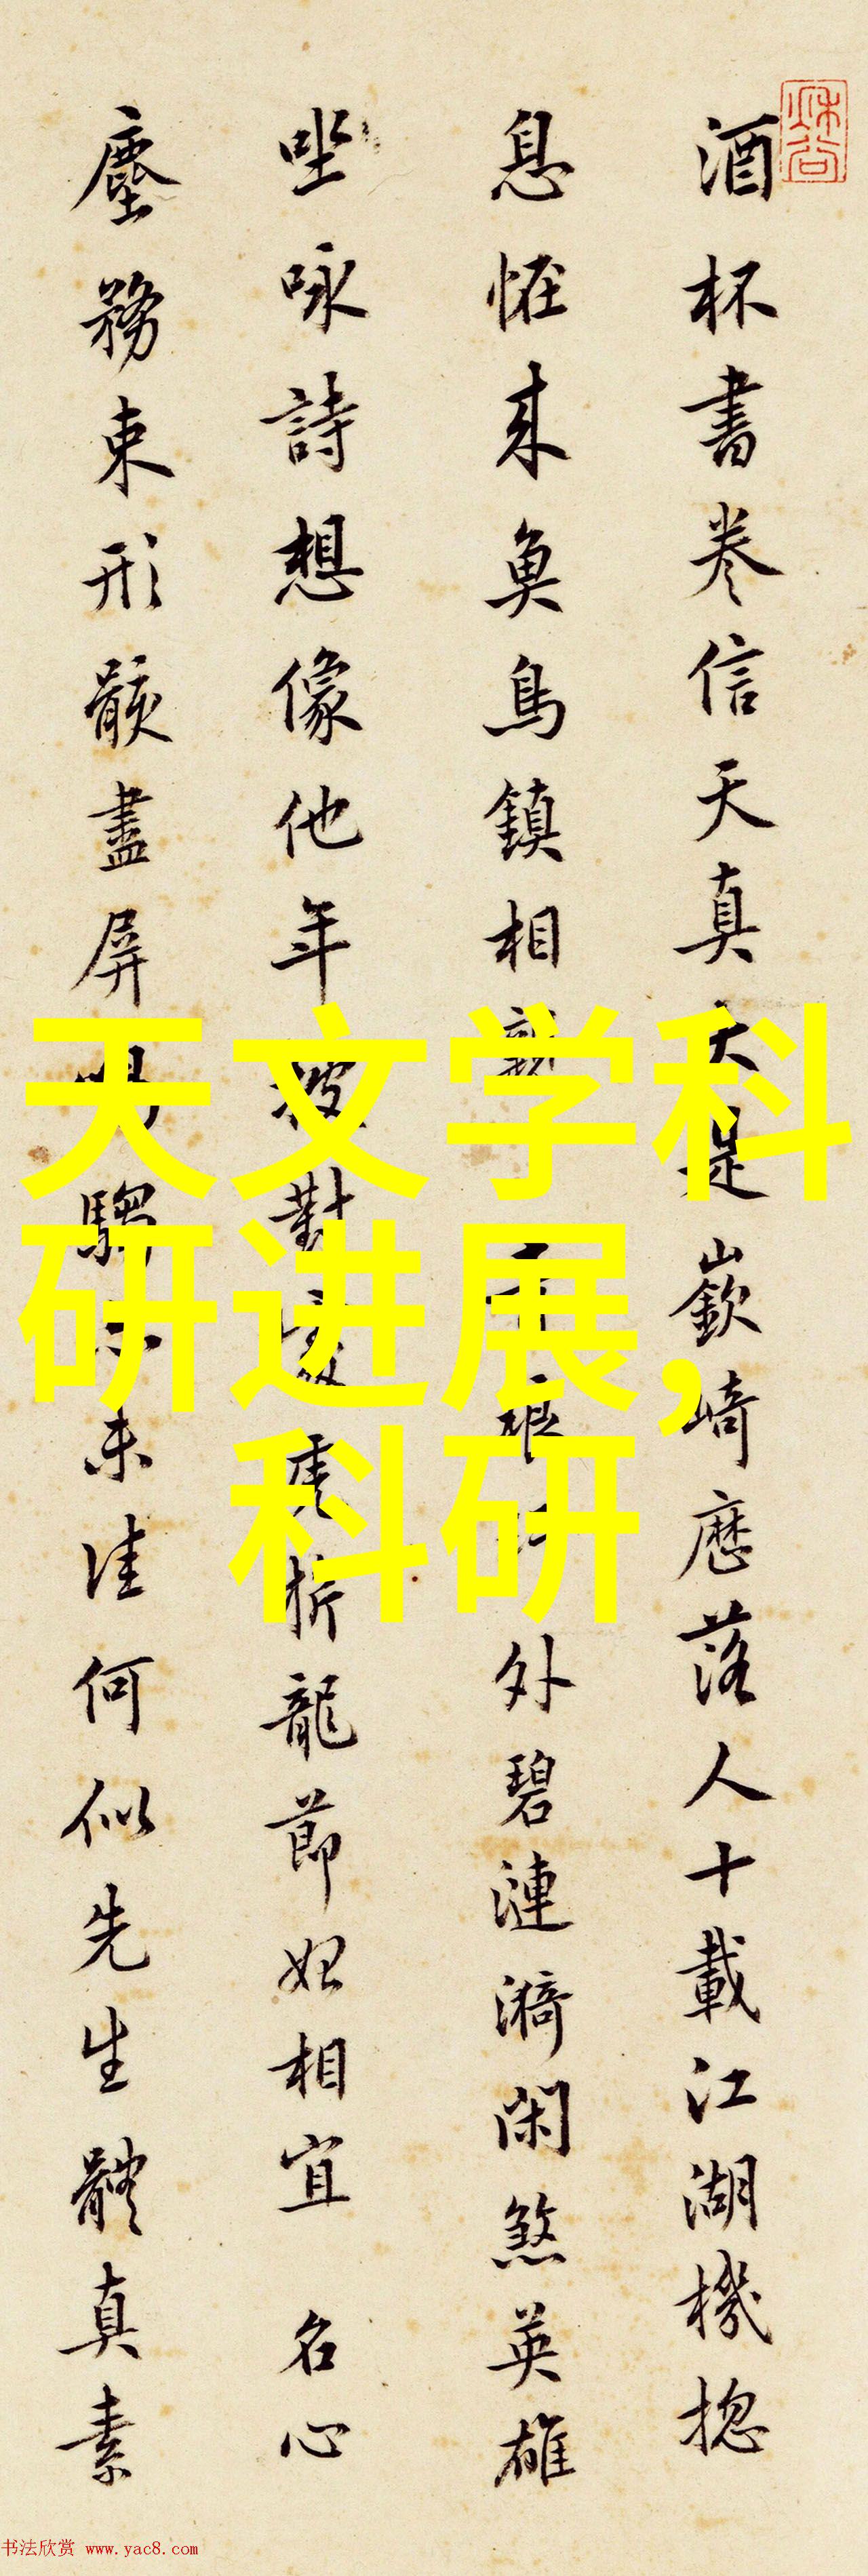 酒杯書卷信天真是嶔崎歷落人十載江湖機揔
息怪來魚鳥鎮相親外碧漣漪閑煞英雄
坐咏詩想像他年對折龍節相宜名心
塵務束形骸盡屏未佳何似先生體真素
天文学科
研进展,
科研
书法欣赏 www.yac8.com